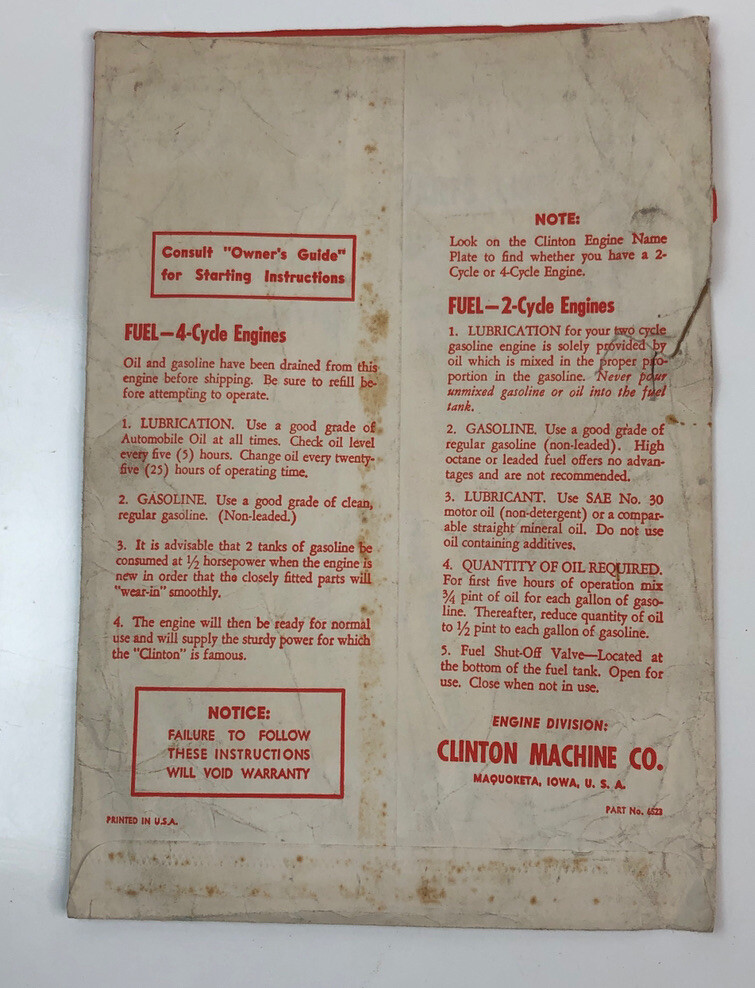 Consult "Owner's Guide"
for Starting Instructions
FUEL—4-Cycle Engines
Oil and gasoline have been drained from this
engine before shipping. Be sure to refill be-
fore attempting to operate.
1. LUBRICATION. Use a good grade of
Automobile Oil at all times. Check oil level
every five (5) hours. Change oil every twenty-
five (25) hours of operating time.
2. GASOLINE. Use a good grade of clean,
regular gasoline. (Non-leaded.)
3. It is advisable that 2 tanks of gasoline be
consumed at ½ horsepower when the engine is
new in order that the closely fitted parts will
"wear-in" smoothly.
4. The engine will then be ready for normal
use and will supply the sturdy power for which
the "Clinton" is famous.
NOTICE:
FAILURE TO FOLLOW
THESE INSTRUCTIONS
WILL VOID WARRANTY
PRINTED IN U.S.A.
NOTE:
Look on the Clinton Engine Name
Plate to find whether you have a 2-
Cycle or 4-Cycle Engine.
FUEL—2-Cycle Engines
1. LUBRICATION for your two cycle
gasoline engine is solely provided by
oil which is mixed in the proper pro-
portion in the gasoline. Never pour
unmixed gasoline or oil into the fuel
tank.
2. GASOLINE. Use a good grade of
regular gasoline (non-leaded). High
octane or leaded fuel offers no advan-
tages and are not recommended.
3. LUBRICANT. Use SAE No. 30
motor oil (non-detergent) or a compar-
able straight mineral oil. Do not use
oil containing additives.
4. QUANTITY OF OIL REQUIRED.
For first five hours of operation mix
¾ pint of oil for each gallon of gaso-
line. Thereafter, reduce quantity of oil
to ½ pint to each gallon of gasoline.
5. Fuel Shut-Off Valve—Located at
the bottom of the fuel tank. Open for
use. Close when not in use.
ENGINE DIVISION:
CLINTON MACHINE CO.
MAQUOKETA, IOWA, U. S. A.
PART No. 6523